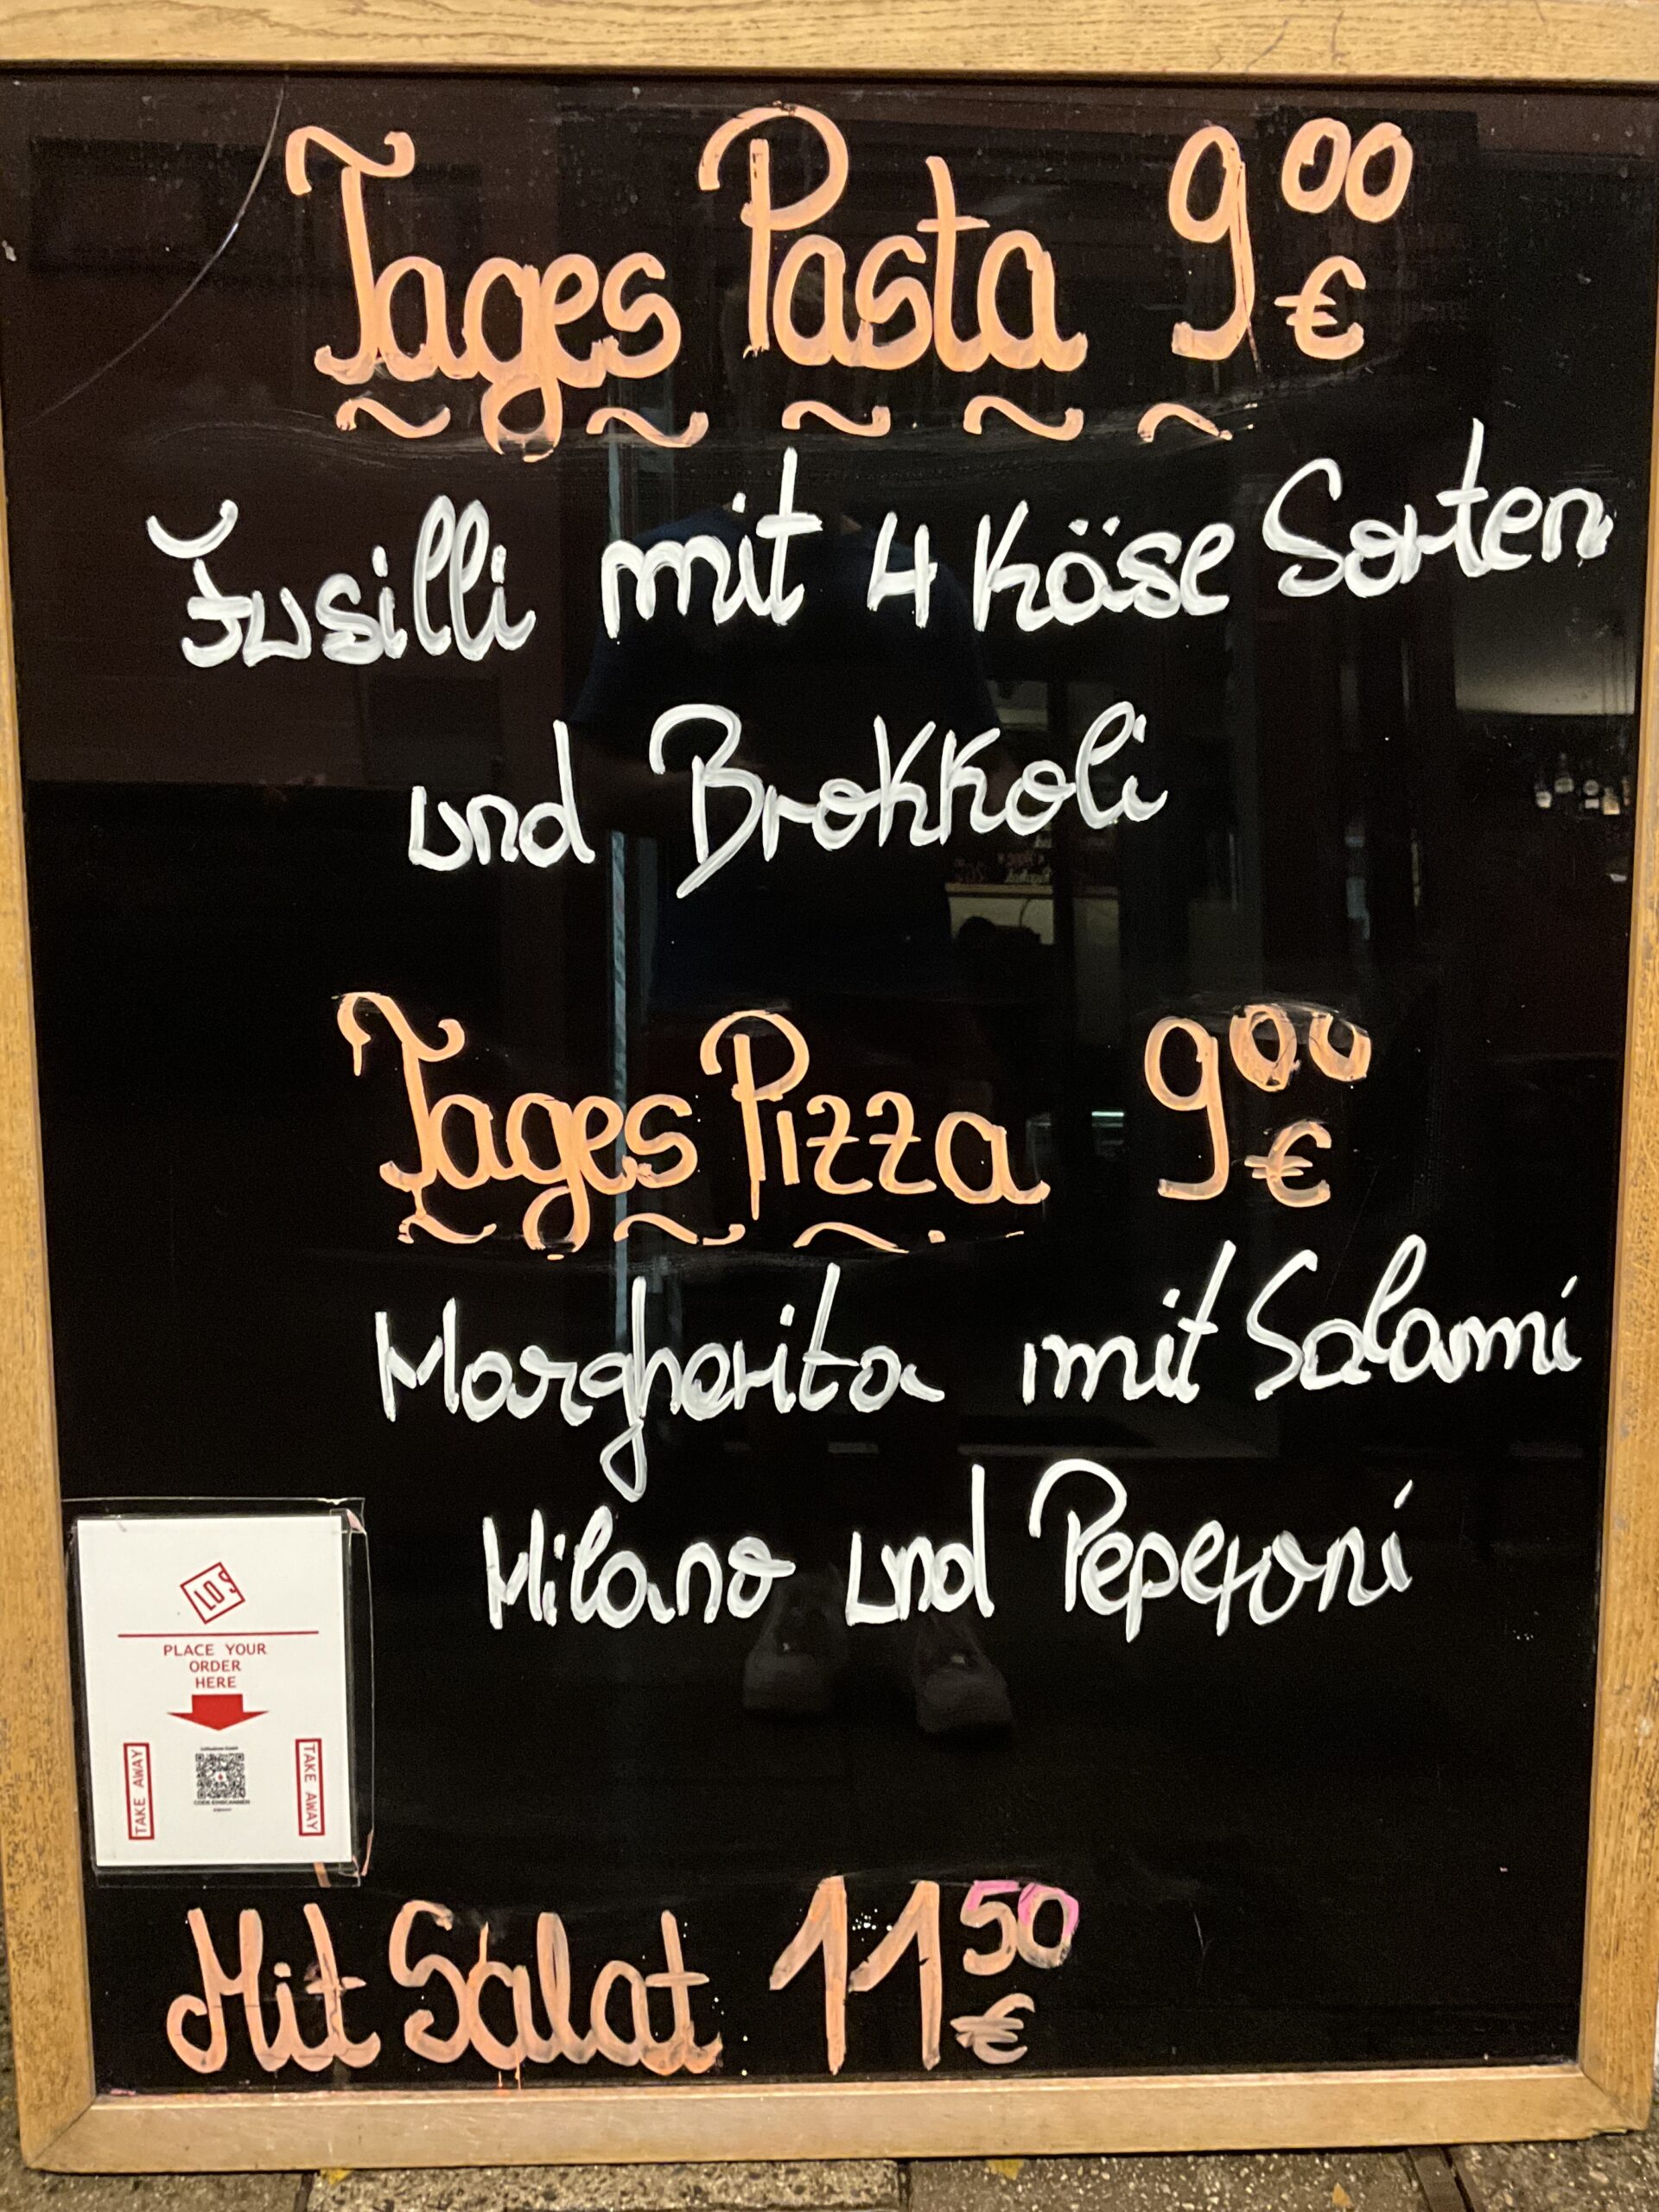 Tages Pasta 9⁰⁰ €
Fusilli mit 4 Käse Sorten
und Brokkoli
Tages Pizza 9⁰⁰ €
Margherita mit Salami
Milano und Peperoni
LO
PLACE YOUR
ORDER
HERE
TAKE AWAY
TAKE AWAY
CODE EINSCANNEN
Mit Salat 11⁵⁰ €